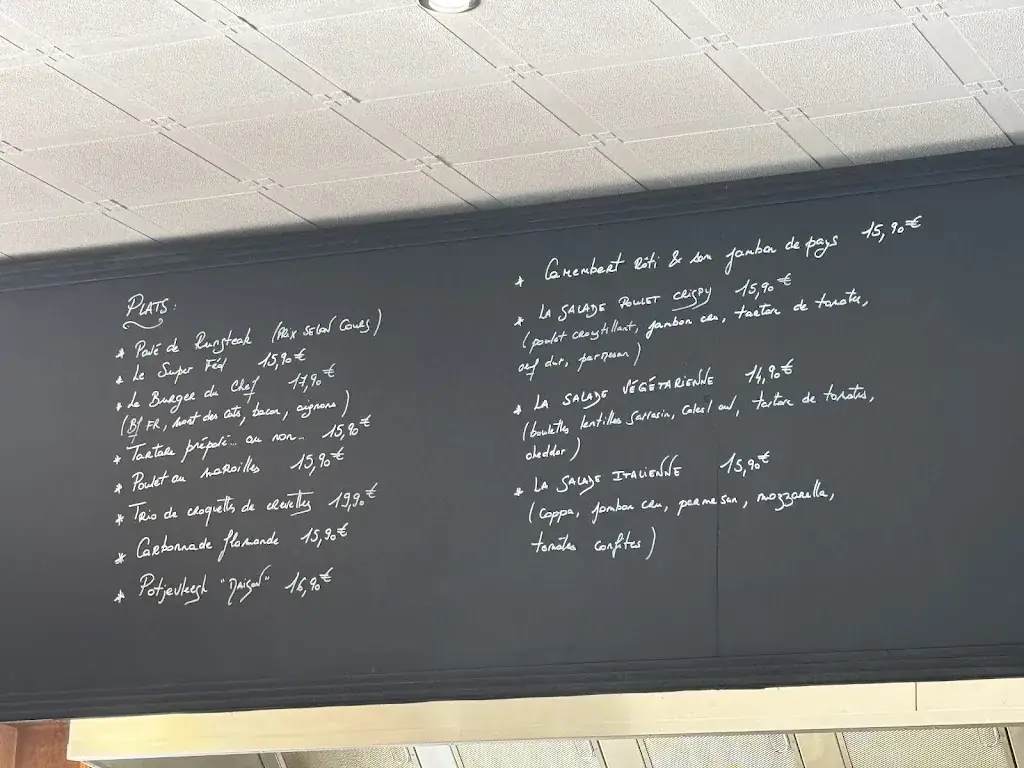 PLATS:
* Pavé de Rumsteak (PRIX SELON COURS)
* Le Super Féd 15,90€
* Le Burger du Chef 17,90€
(Bf FR, mont des cats, bacon, oignons)
* Tartare préparé... ou non... 15,90€
* Poulet au maroilles 15,90€
* Trio de croquettes de crevettes 19,90€
* Carbonnade flamande 15,90€
* Potjevleesh "MAISON" 16,90€
* Camembert rôti & son jambon de pays 15,90€
* LA SALADE POULET CRISPY 15,90€
(poulet croustillant, jambon cru, tartare de tomates,
œuf dur, parmesan)
* LA SALADE VÉGÉTARIENNE 14,90€
(boulettes lentilles sarrasin, tartare de tomates,
cheddar)
* LA SALADE ITALIENNE 15,90€
(Coppa, jambon cru, parmesan, mozzarella,
tomates confites)